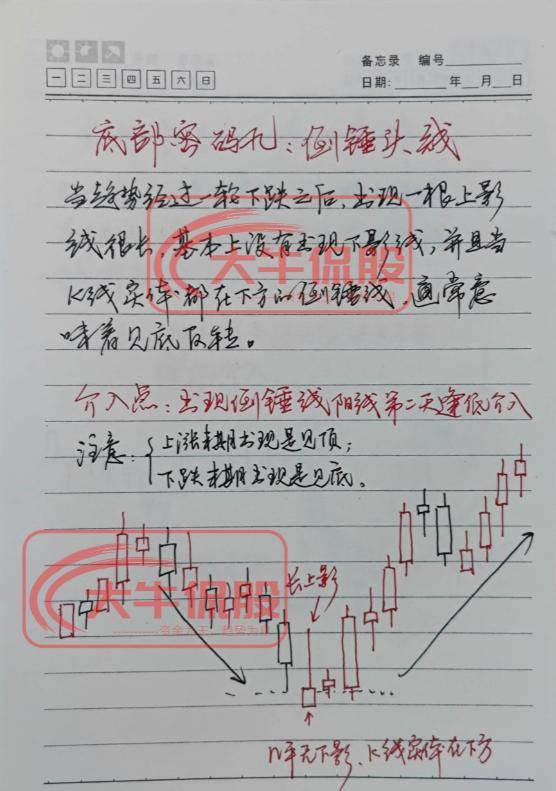 备忘录 编号
一 二 三 四 五 六 日
日期: 年 月 日
底部密码孔：倒锤头线
当趋势经过一轮下跌之后，出现一根上影
线很长，基本上没有出现下影线，并且当
K线实体都在下方的倒锤线，通常意
味着见底反转。
介入点：出现倒锤线阳线第二天逢低介入
注意：
上涨末期出现是见顶；
下跌末期出现是见底。
大牛侃股
大牛侃股
长上影
几乎无下影、K线实体在下方